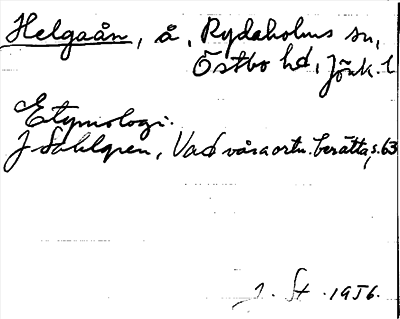 Helgaån, å, Rydaholms sn,
Östbo hd, Jönk. l
Etymologi.
J Sahlgren, Vad våra ortn. berätta, s. 63
J. St. 1956.